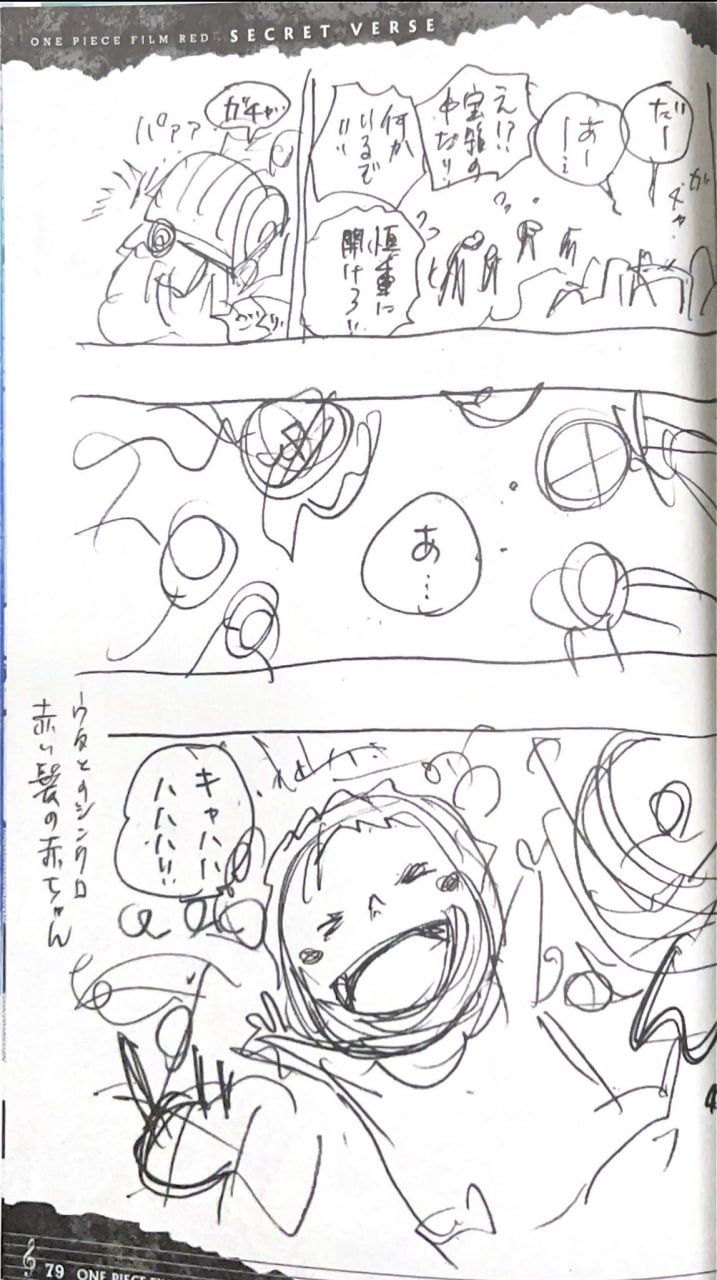 ONE PIECE FILM RED SECRET VERSE
だー
あー
ー…
ガチャ
え!?
宝箱の
中だ!!
何か
いるで
!!
慎重に
開けろ!!
ガチャ
パアア
あ…
キャハハ
ハハハ!!
ウタとのシンクロ
赤い髪の赤ちゃん
79 ONE PIECE